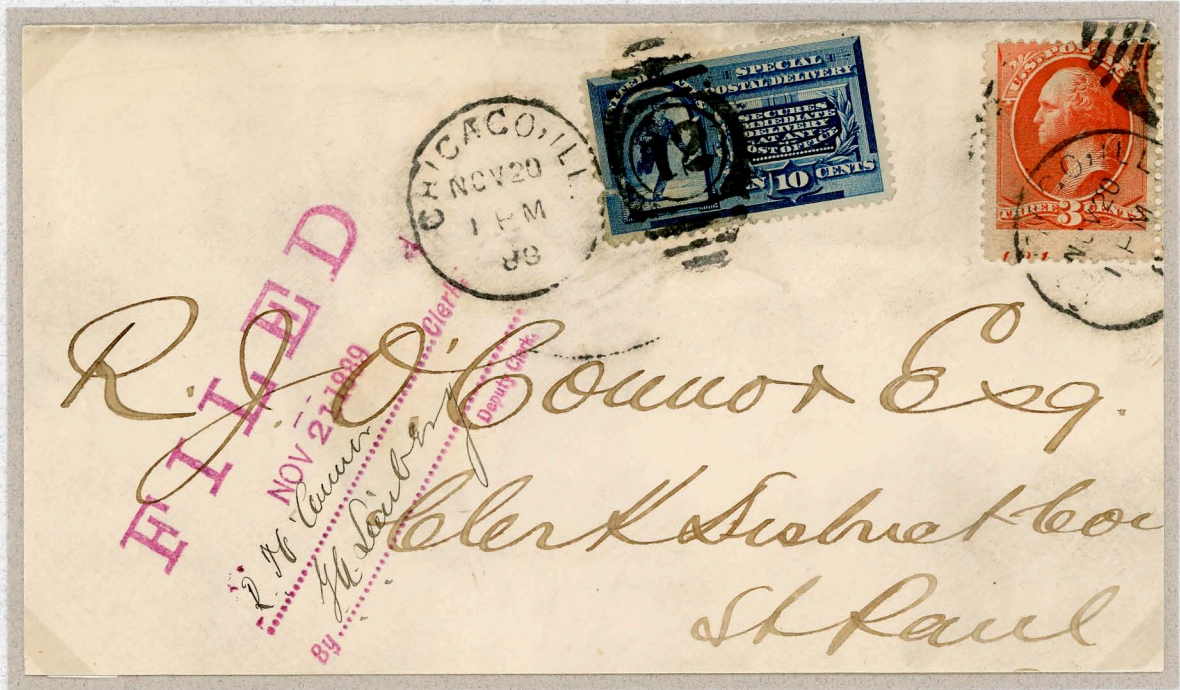 CHICAGO, ILL.
NOV 20
1 PM
88
UNITED STATES
SPECIAL
POSTAL DELIVERY
SECURES
IMMEDIATE
DELIVERY
AT ANY
POST OFFICE
TEN 10 CENTS
12
U.S. POSTAGE
THREE 3 CENTS
CHICAGO, ILL
NOV 20
1 PM
FILED
NOV 21 1889
Clerk
By Deputy Clerk.
R. J. O'Connor Esq.
Clerk District Cou
St Paul